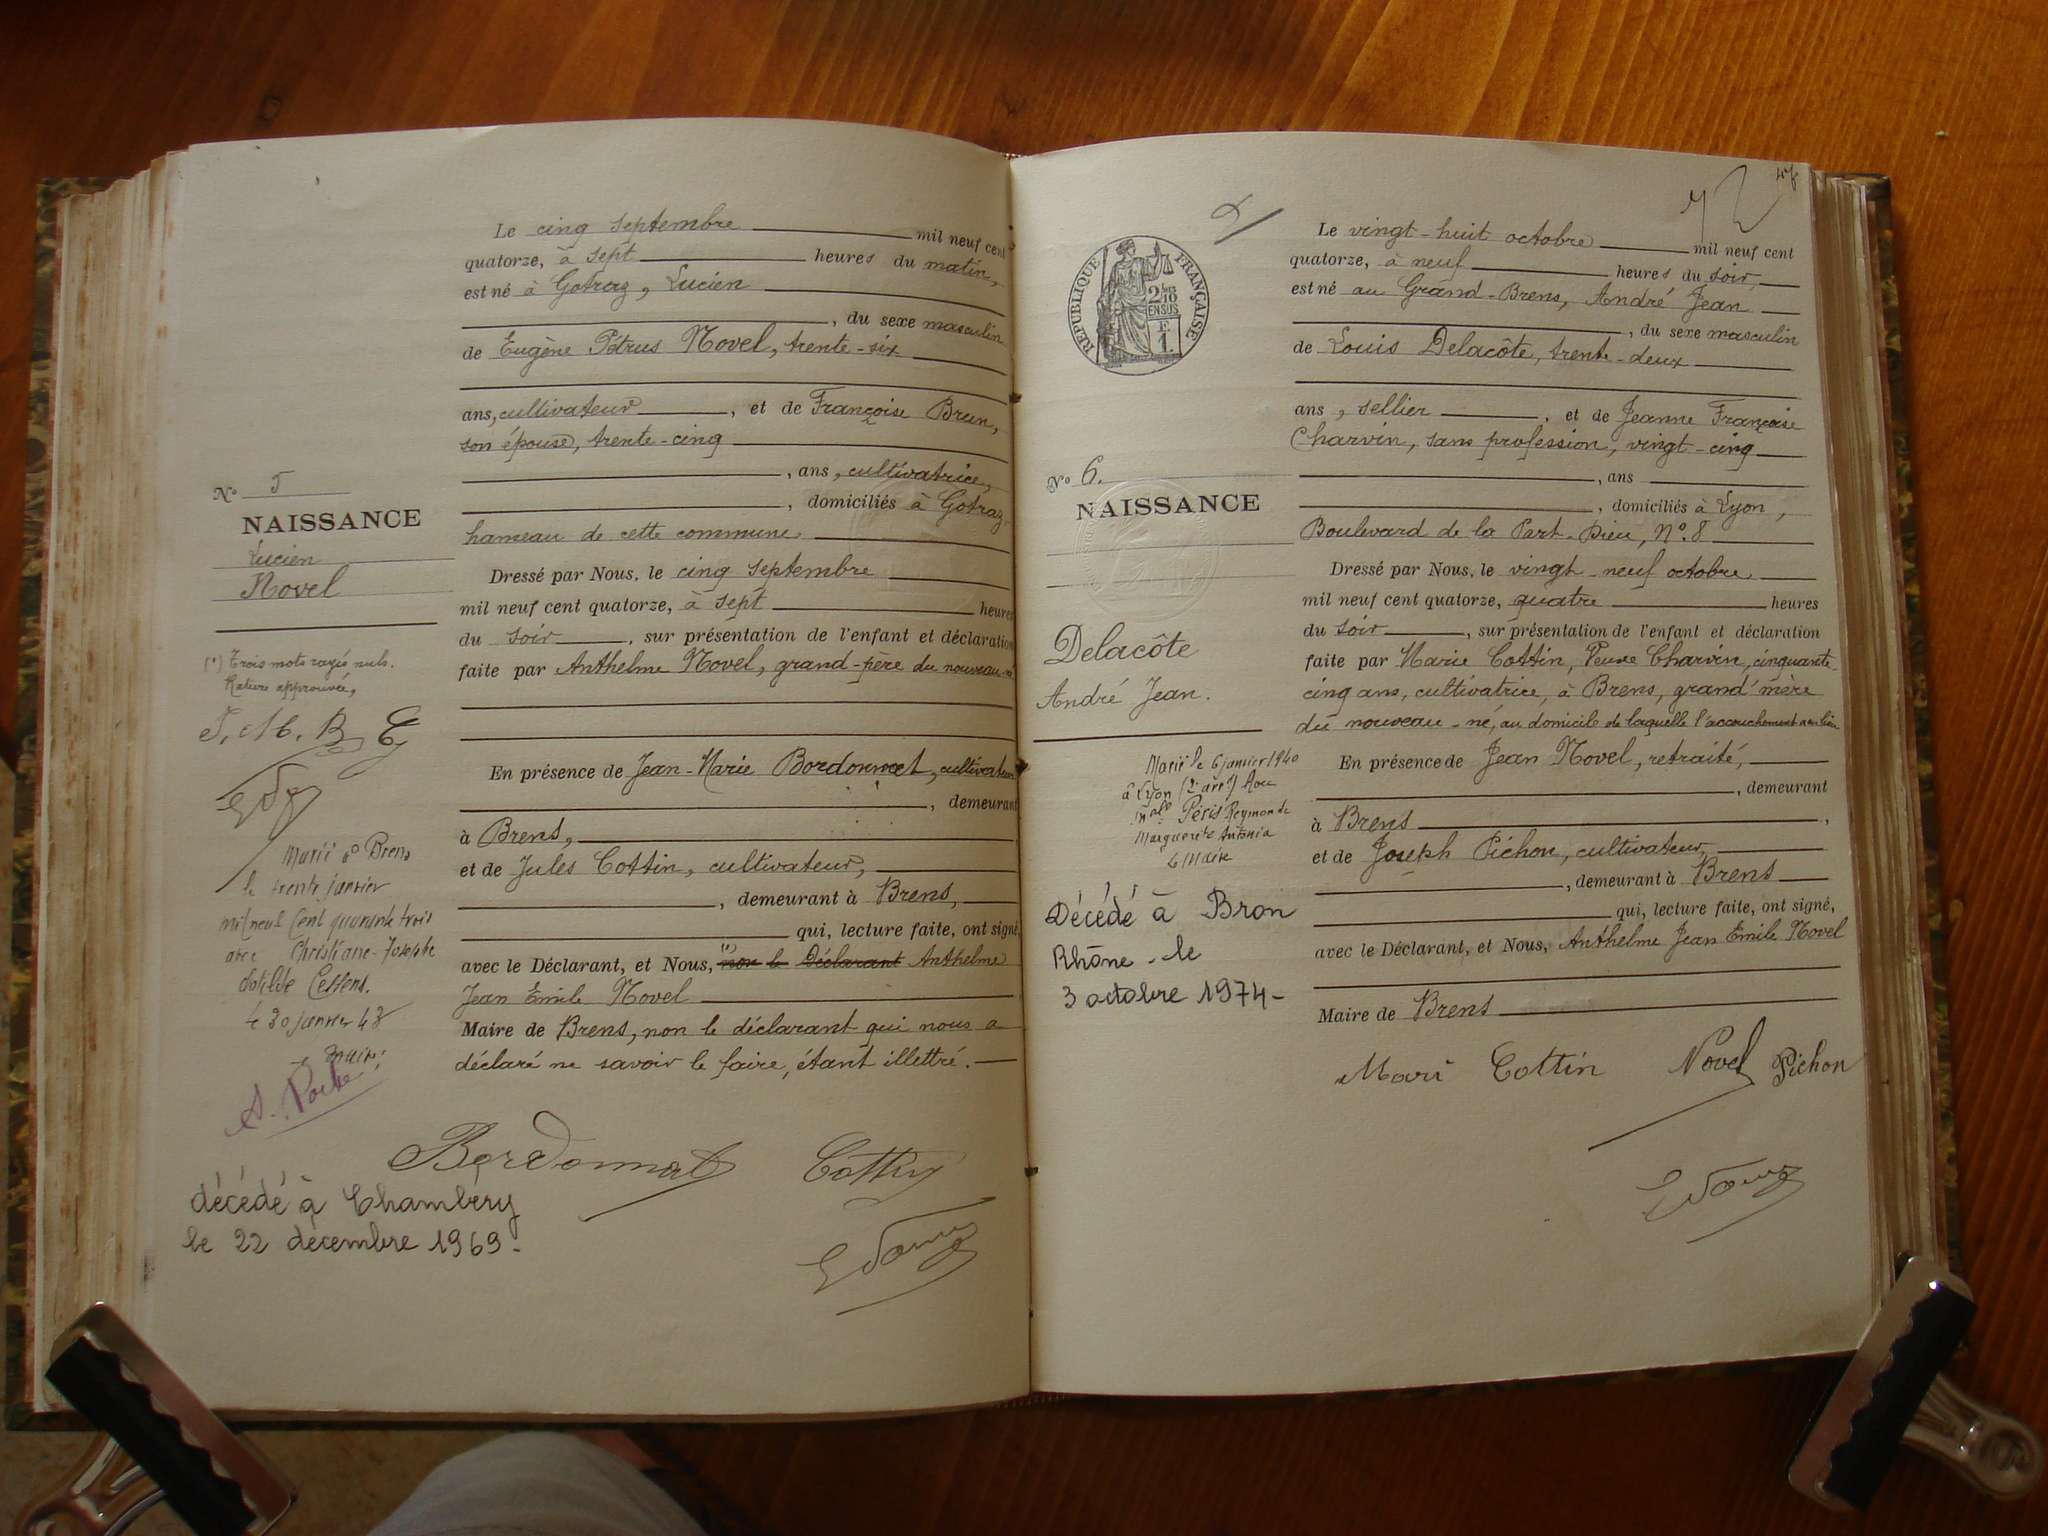 Le cinq septembre mil neuf cent
quatorze, à sept heures du matin,
est né à Gotraz, Lucien
, du sexe masculin
de Eugène Pétrus Novel, trente-six
ans, cultivateur, et de Françoise Brun,
son épouse, trente-cinq
, ans, cultivatrice,
, domiciliés à Gotraz
hameau de cette commune.
Dressé par Nous, le cinq septembre
mil neuf cent quatorze, à sept heures
du soir, sur présentation de l'enfant et déclaration
faite par Anthelme Novel, grand-père du nouveau-né
En présence de Jean-Marie Bordonnat, cultivateur
, demeurant
à Brens,
et de Jules Cottin, cultivateur,
, demeurant à Brens,
qui, lecture faite, ont signé,
avec le Déclarant, et Nous, (1) non le Déclarant Anthelme
Jean Emile Novel
Maire de Brens, non le déclarant qui nous a
déclaré ne savoir le faire, étant illettré.
Bordonnat Cottin
No 5
NAISSANCE
Lucien
Novel
(1) Trois mots rayés nuls.
Rature approuvée,
J. M. B. C
Marié à Brens
le trente janvier
mil neuf cent quarante trois
avec Christiane-Josephe
Clotilde Cessens.
le 30 janvier 43
Maire:
décédé à Chambéry
le 22 décembre 1969.
47
RÉPUBLIQUE FRANÇAISE
2/10
EN SUS
1F
Le vingt-huit octobre mil neuf cent
quatorze, à neuf heures du soir,
est né au Grand-Brens, André Jean
, du sexe masculin
de Louis Delacôte, trente-deux
ans, sellier, et de Jeanne Françoise
Charvin, sans profession, vingt-cinq
, ans
, domiciliés à Lyon,
Boulevard de la Part-Dieu, No. 8
Dressé par Nous, le vingt-neuf octobre
mil neuf cent quatorze, quatre heures
du soir, sur présentation de l'enfant et déclaration
faite par Marie Cottin, Veuve Charvin, cinquante-
cinq ans, cultivatrice, à Brens, grand'mère
du nouveau-né, au domicile de laquelle l'accouchement a eu lieu
En présence de Jean Novel, retraité,
, demeurant
à Brens,
et de Joseph Pichon, cultivateur,
, demeurant à Brens
qui, lecture faite, ont signé,
avec le Déclarant, et Nous, Anthelme Jean Emile Novel
Maire de Brens
Mari Cottin Novel Pichon
No 6.
NAISSANCE
Delacôte
André Jean.
Marié le 6 janvier 1940
à Lyon (2e arrt) avec
Mlle Péris Reymonde
Marguerite Antonia
Le Maire
Décédé à Bron
Rhône - le
3 octobre 1974-